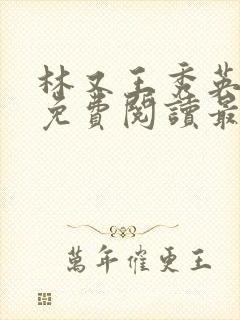 林又王秀英
免費閱讀最
萬年催更王